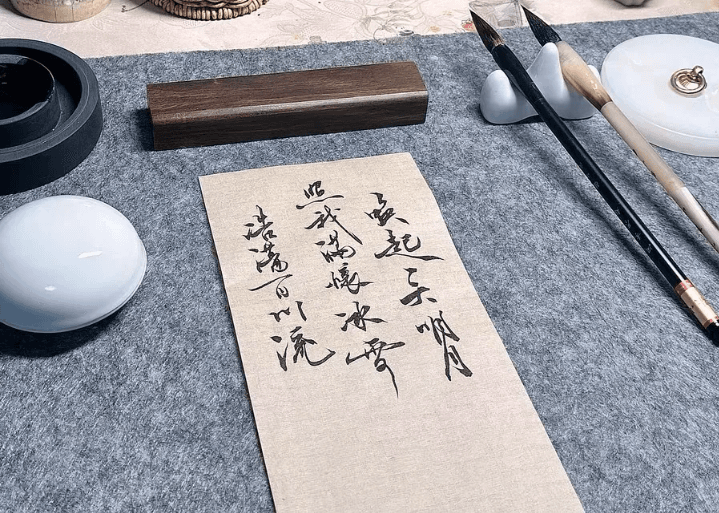 喚起一天明月
照我滿懷冰雪
浩蕩百川流